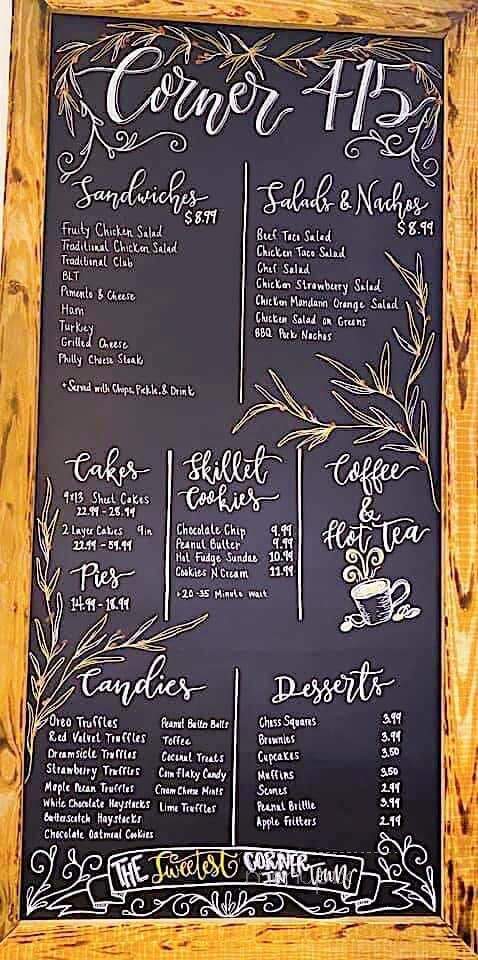 Corner 415
Sandwiches
$8.99
Fruity Chicken Salad
Traditional Chicken Salad
Traditional Club
BLT
Pimento & Cheese
Ham
Turkey
Grilled Cheese
Philly Cheese Steak
* Served with Chips, Pickle, & Drink
Salads & Nachos
$8.99
Beef Taco Salad
Chicken Taco Salad
Chef Salad
Chicken Strawberry Salad
Chicken Mandarin Orange Salad
Chicken Salad on Greens
BBQ Pork Nachos
Cakes
9x13 Sheet Cakes
22.99 - 28.99
2 Layer Cakes 9in
22.99 - 59.99
Pies
14.99 - 18.99
Skillet
Cookies
Chocolate Chip 9.99
Peanut Butter 9.99
Hot Fudge Sundae 10.99
Cookies N Cream 11.99
* 20-35 Minute Wait
Coffee
&
Hot Tea
Candies
Oreo Truffles
Red Velvet Truffles
Dreamsicle Truffles
Strawberry Truffles
Maple Pecan Truffles
White Chocolate Haystacks
Butterscotch Haystacks
Chocolate Oatmeal Cookies
Peanut Butter Balls
Toffee
Coconut Treats
Corn Flaky Candy
Cream Cheese Mints
Lime Truffles
Desserts
Chess Squares 3.99
Brownies 3.99
Cupcakes 3.50
Muffins 3.50
Scones 2.99
Peanut Brittle 3.99
Apple Fritters 2.99
THE Sweetest CORNER IN TOWN